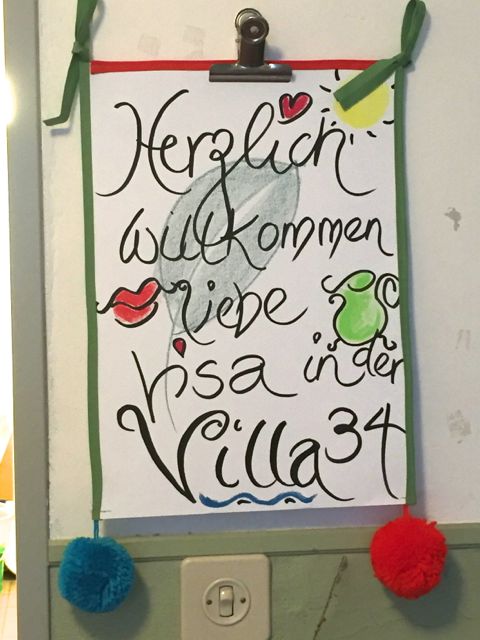 Herzlich
willkommen
liebe
Lisa in der
Villa 34